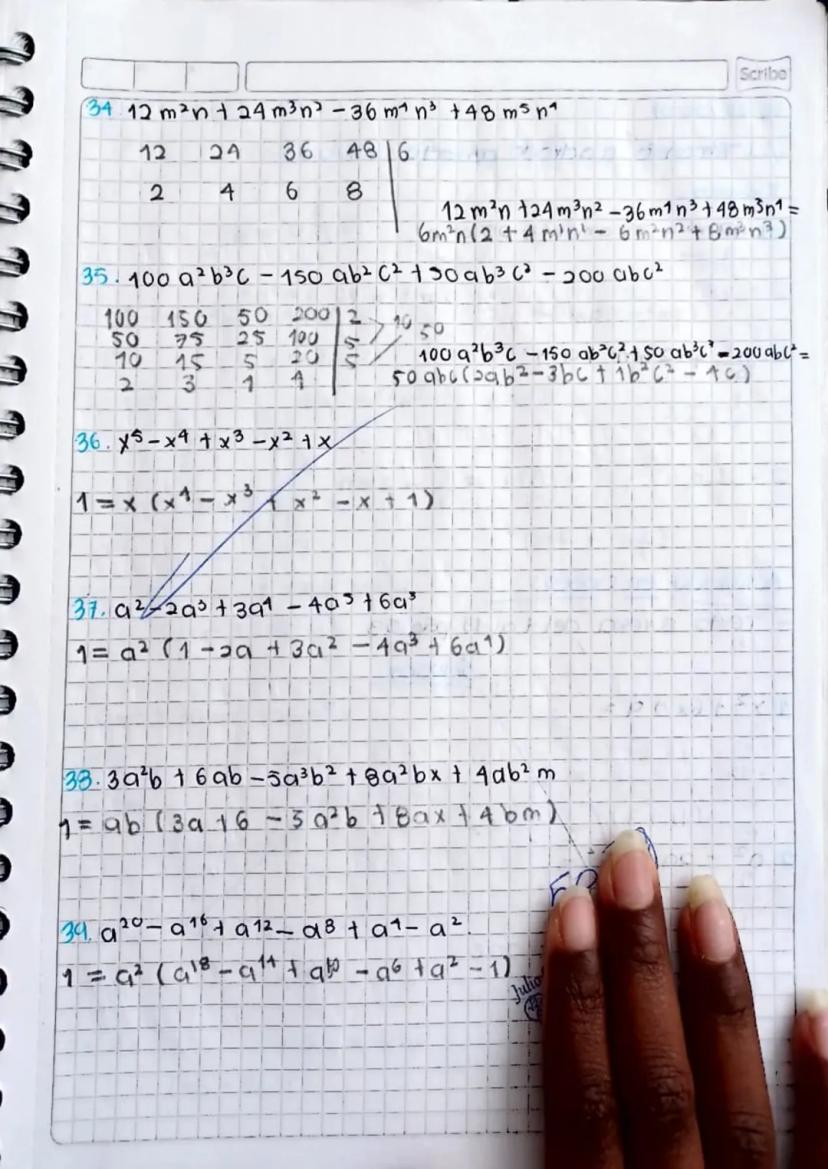 Scribe
34 12m²n + 24m³n² - 36m⁴n³ + 48m⁵n⁴
12 24 36 48 | 6
2 4 6 8
12m²n + 24m³n² - 36m⁴n³ + 48m⁵n⁴ =
6m²n (2 + 4m¹n¹ - 6m²n² + 8m³n³)
35. 100a²b³c - 150ab²c² + 50ab³c³ - 200abc²
100 150 50 200 | 2
50 75 25 100 | 5 > 10 50
10 15 5 20 | 5
100a²b³c - 150ab²c² + 50ab³c³ - 200abc² =
2 3 1 4
50abc (2ab² - 3bc + 1b²c² - 4c)
36. x⁵ - x⁴ + x³ - x² + x
1 = x (x⁴ - x³ + x² - x + 1)
37. a² - 2a³ + 3a⁴ - 4a⁵ + 6a⁶
1 = a² (1 - 2a + 3a² - 4a³ + 6a⁴)
38. 3a²b + 6ab - 5a³b² + 8a²bx + 4ab²m
1 = ab (3a + 6 - 5a²b + 8ax + 4bm)
39. a²⁰ - a¹⁶ + a¹² - a⁸ + a⁴ - a²
1 = a² (a¹⁸ - a¹⁴ + a¹⁰ - a⁶ + a² - 1)